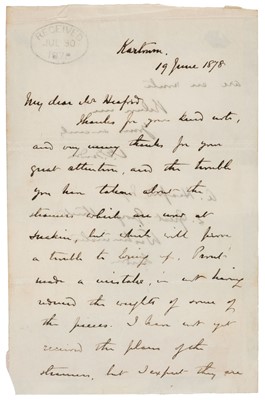 RECEIVED
Kartoum.
19 June 1878.
My dear Mr
Thanks for your kind note,
and very many thanks for your
great attention, and the trouble
you have taken about the
steamers which are now at
Suakin, but which will prove
a trouble to bring up.
made a mistake, in not having
reduced the weights of some of
the pieces. I have not yet
received the plans of the
steamers, but I expect they are